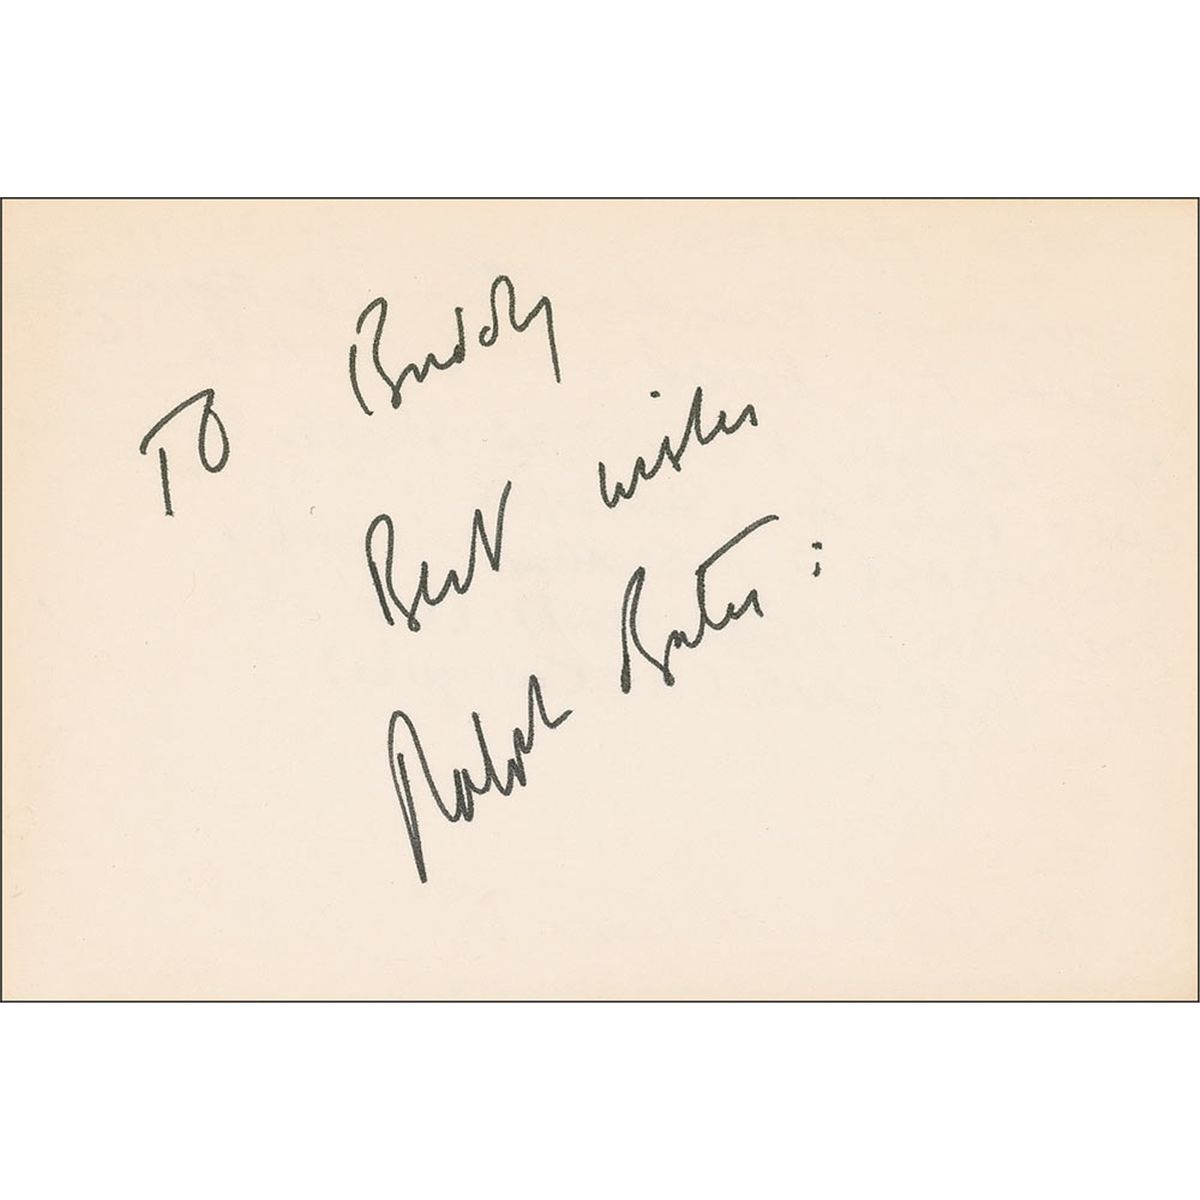 To Buddy
Best wishes
Ralph Bates :